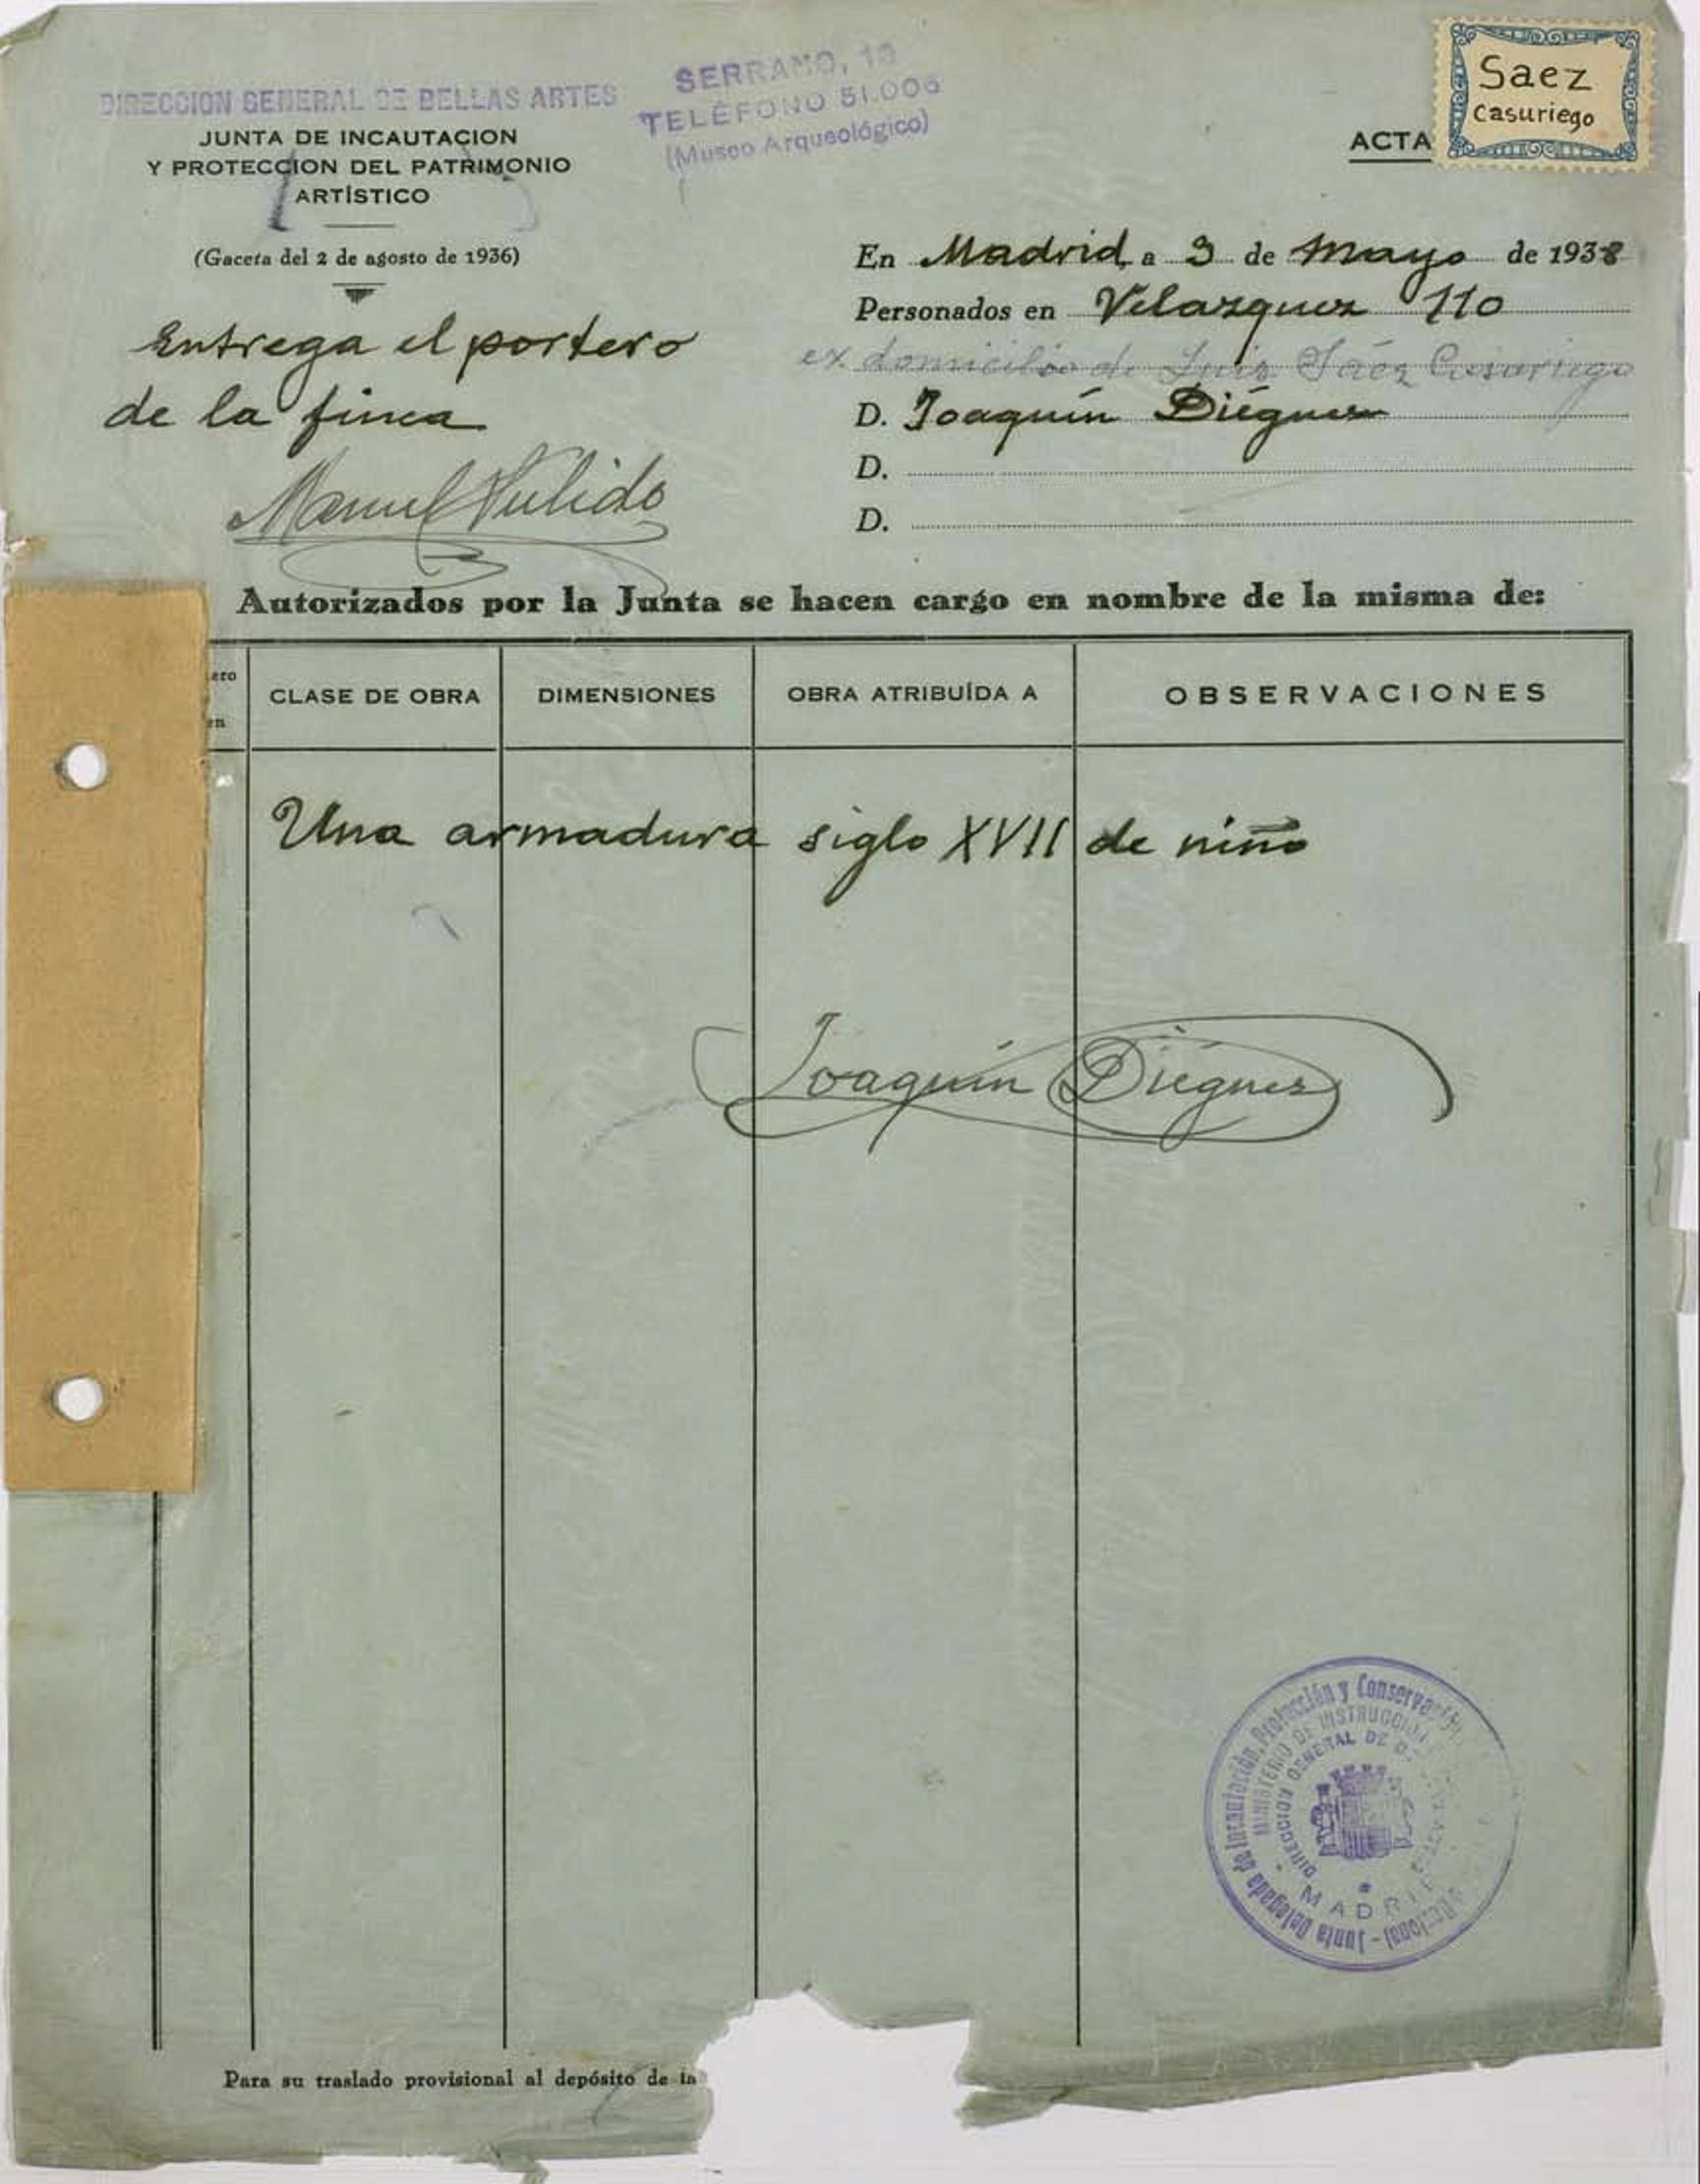 DIRECCION GENERAL DE BELLAS ARTES
JUNTA DE INCAUTACION
Y PROTECCION DEL PATRIMONIO
ARTÍSTICO
(Gaceta del 2 de agosto de 1936)
SERRANO, 13
TELÉFONO 51.006
(Museo Arqueológico)
ACTA
Saez
Casuriego
En Madrid, a 3 de Mayo de 1938
Personados en Velazquez 110
ex domicilio de Luis Sáez Casuriego
D. Joaquín Diéguez
D.
D.
Entrega el portero
de la finca
Manuel Pulido
Autorizados por la Junta se hacen cargo en nombre de la misma de:
CLASE DE OBRA DIMENSIONES OBRA ATRIBUÍDA A OBSERVACIONES
Una armadura siglo XVII de niño
Joaquín Diéguez
Junta Delegada de Incautación, Protección y Conservación
MINISTERIO DE INSTRUCCION
DIRECCION GENERAL DE
MADRID
Para su traslado provisional al depósito de la